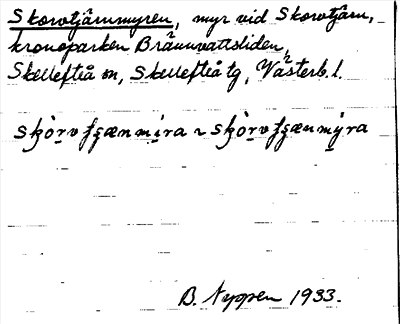 Skorvtjärnmyren, myr vid Skorvtjärn,
kronoparken Brännvattsliden,
Skellefteå sn, Skellefteå tg, Västerb. l.
skò̤rvfʂænmi̤ra ~ skò̤rvfʂænmy̤ra
B. Nyppen 1933.